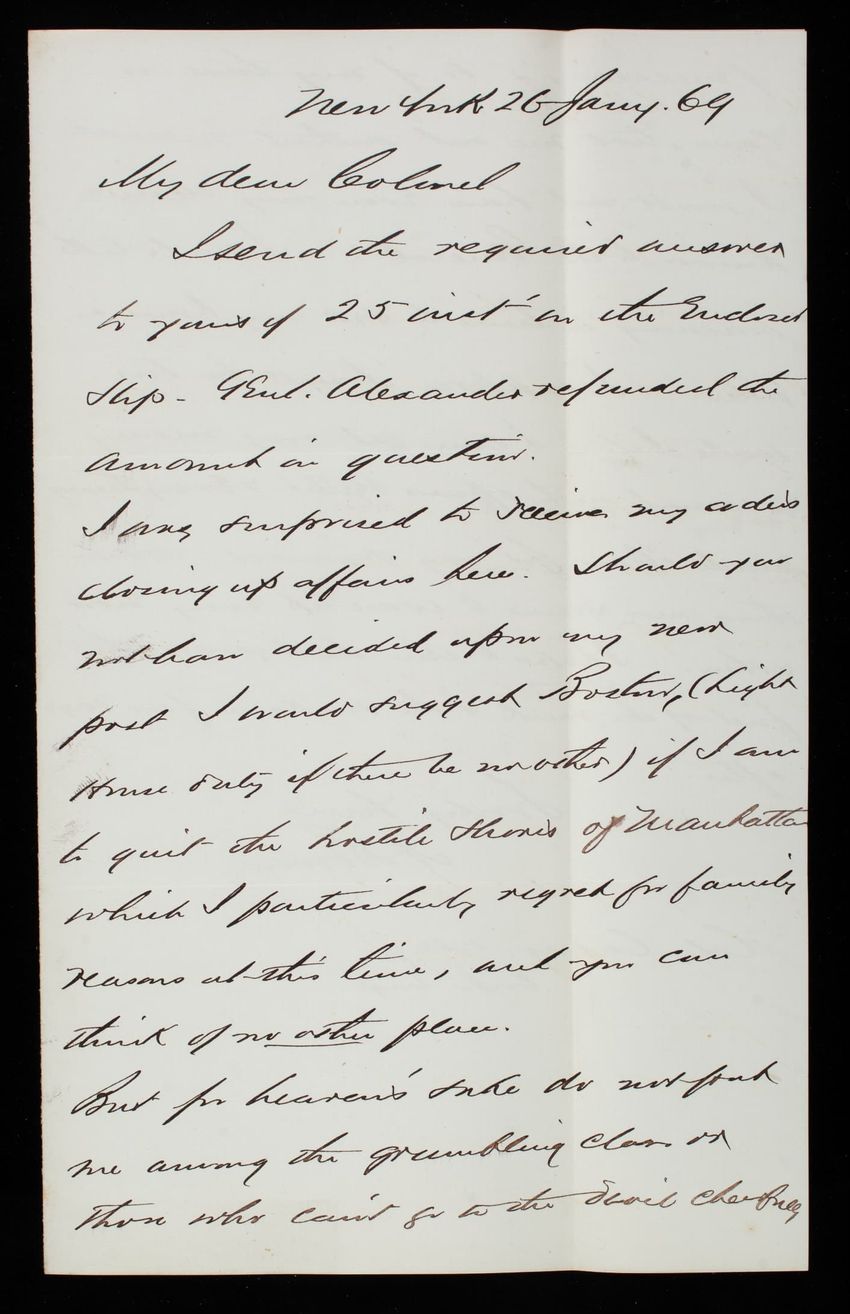 New York 26 Jany. 69
My dear Colonel
I send the required answer
to yours of 25 inst' on the Enclosed
slip - GEnl. Alexander refunded the
amount in question.
I am surprised to receive my orders
closing up affairs here. Should you
not have decided upon my new
post I would suggest Boston, (Light
House duty if there be no other) if I am
to quit the hostile shores of Manhattan
which I particularly regret for family
reasons at this time, and you can
think of no other place.
But for heaven's sake do not put
me among the grumbling class or
those who can't go to the Devil cheerfully